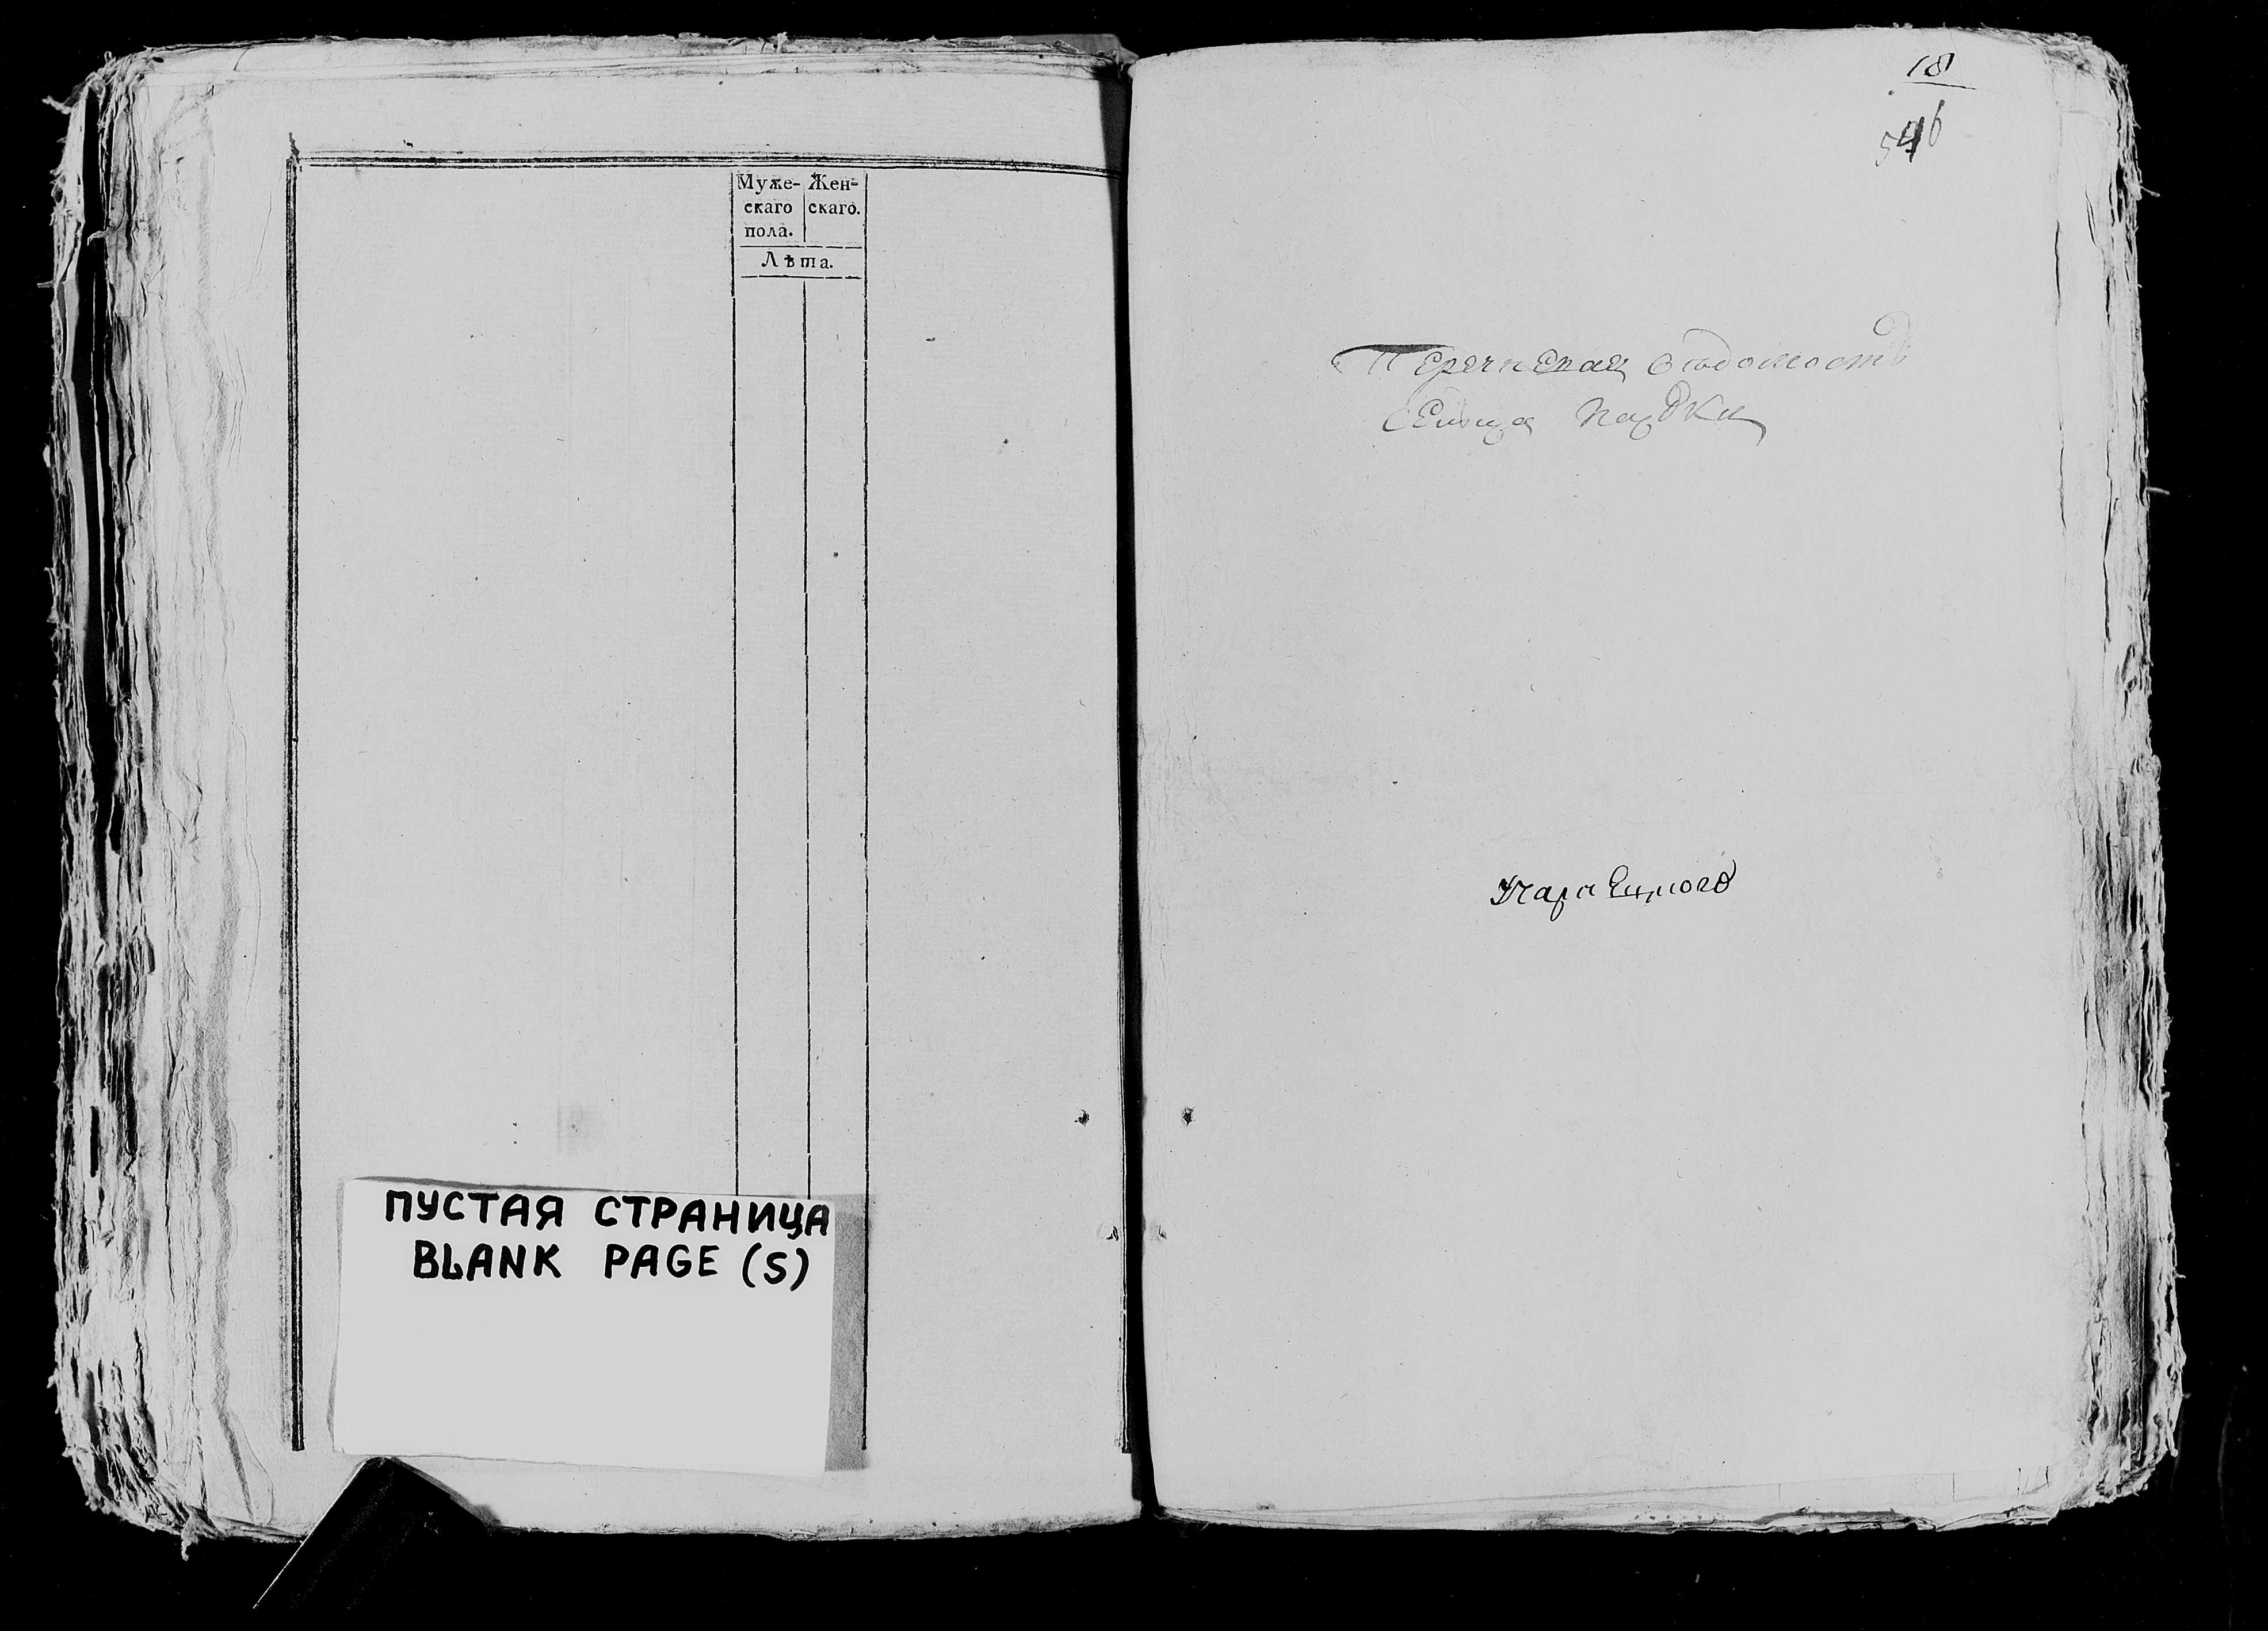 Муже-
скаго
пола.
Жен-
скаго.
Лѣта.
ПУСТАЯ СТРАНИЦА
BLANK PAGE (S)
18
546
Перечневая вѣдомость
Сельца